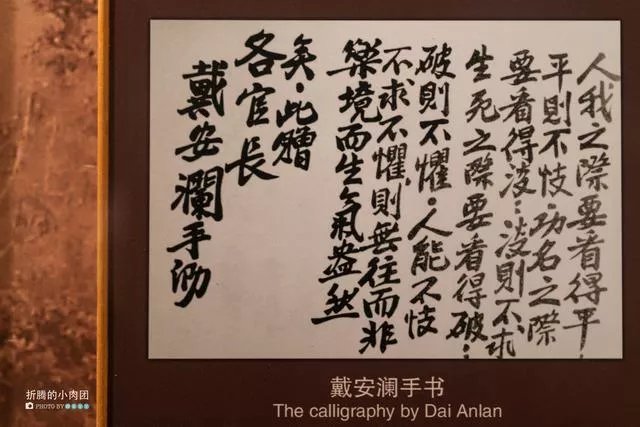 人我之際要看得平.
平則不忮。功名之際
要看得淡：淡則不求
生死之際要看得破：
破則不懼。人能不忮
不求不懼，則無往而非
樂境而生氣盎然
矣。此贈
各官長
戴安瀾手泐
戴安澜手书
The calligraphy by Dai Anlan
折腾的小肉团
PHOTO BY